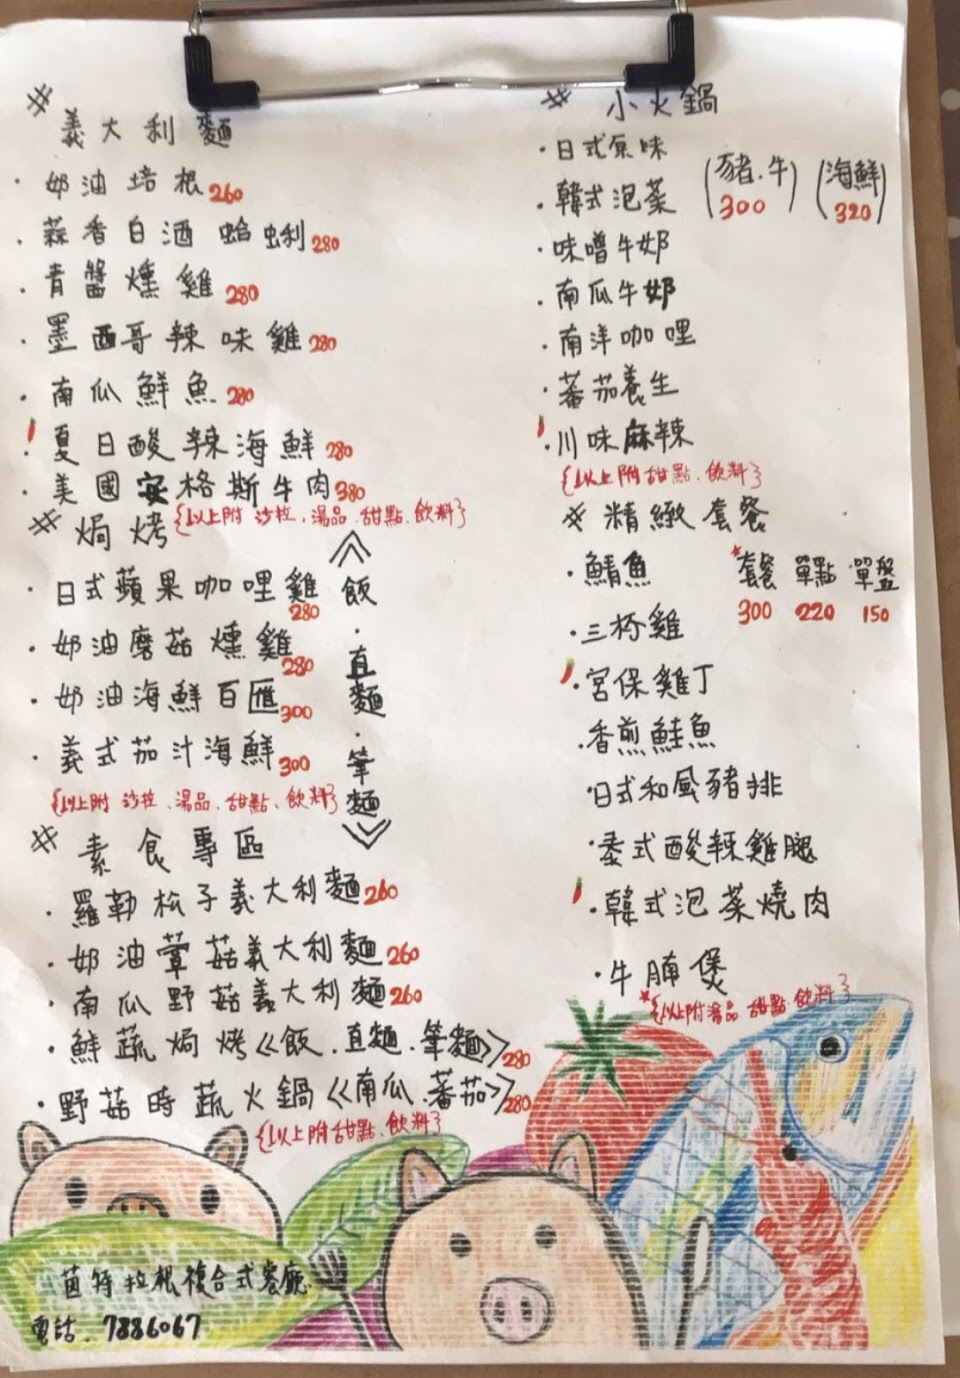 # 義大利麵
· 奶油培根 260
· 蒜香白酒蛤蜊 280
· 青醬燻雞 280
· 墨西哥辣味雞 280
· 南瓜鮮魚 280
· 夏日酸辣海鮮 280
· 美國安格斯牛肉 380
{以上附 沙拉、湯品、甜點、飲料}
# 焗烤
· 日式蘋果咖哩雞 280
· 奶油磨菇燻雞 280
· 奶油海鮮百匯 300
· 義式茄汁海鮮 300
《飯·直麵·筆麵》
{以上附 沙拉、湯品、甜點、飲料}
# 素食專區
· 羅勒松子義大利麵 260
· 奶油蕈菇義大利麵 260
· 南瓜野菇義大利麵 260
· 鮮蔬焗烤《飯.直麵.筆麵》 280
· 野菇時蔬火鍋《南瓜.蕃茄》 280
{以上附甜點、飲料}
# 小火鍋
· 日式原味
· 韓式泡菜
(豬.牛) (海鮮)
300 320
· 味噌牛奶
· 南瓜牛奶
· 南洋咖哩
· 蕃茄養生
· 川味麻辣
{以上附甜點、飲料}
※ 精緻套餐
*套餐 單點 單盤
300 220 150
· 鯖魚
· 三杯雞
· 宮保雞丁
· 香煎鮭魚
· 日式和風豬排
· 泰式酸辣雞腿
· 韓式泡菜燒肉
· 牛腩煲
*{以上附湯品、甜點、飲料}
茵特拉根複合式餐廳
電話.7886067